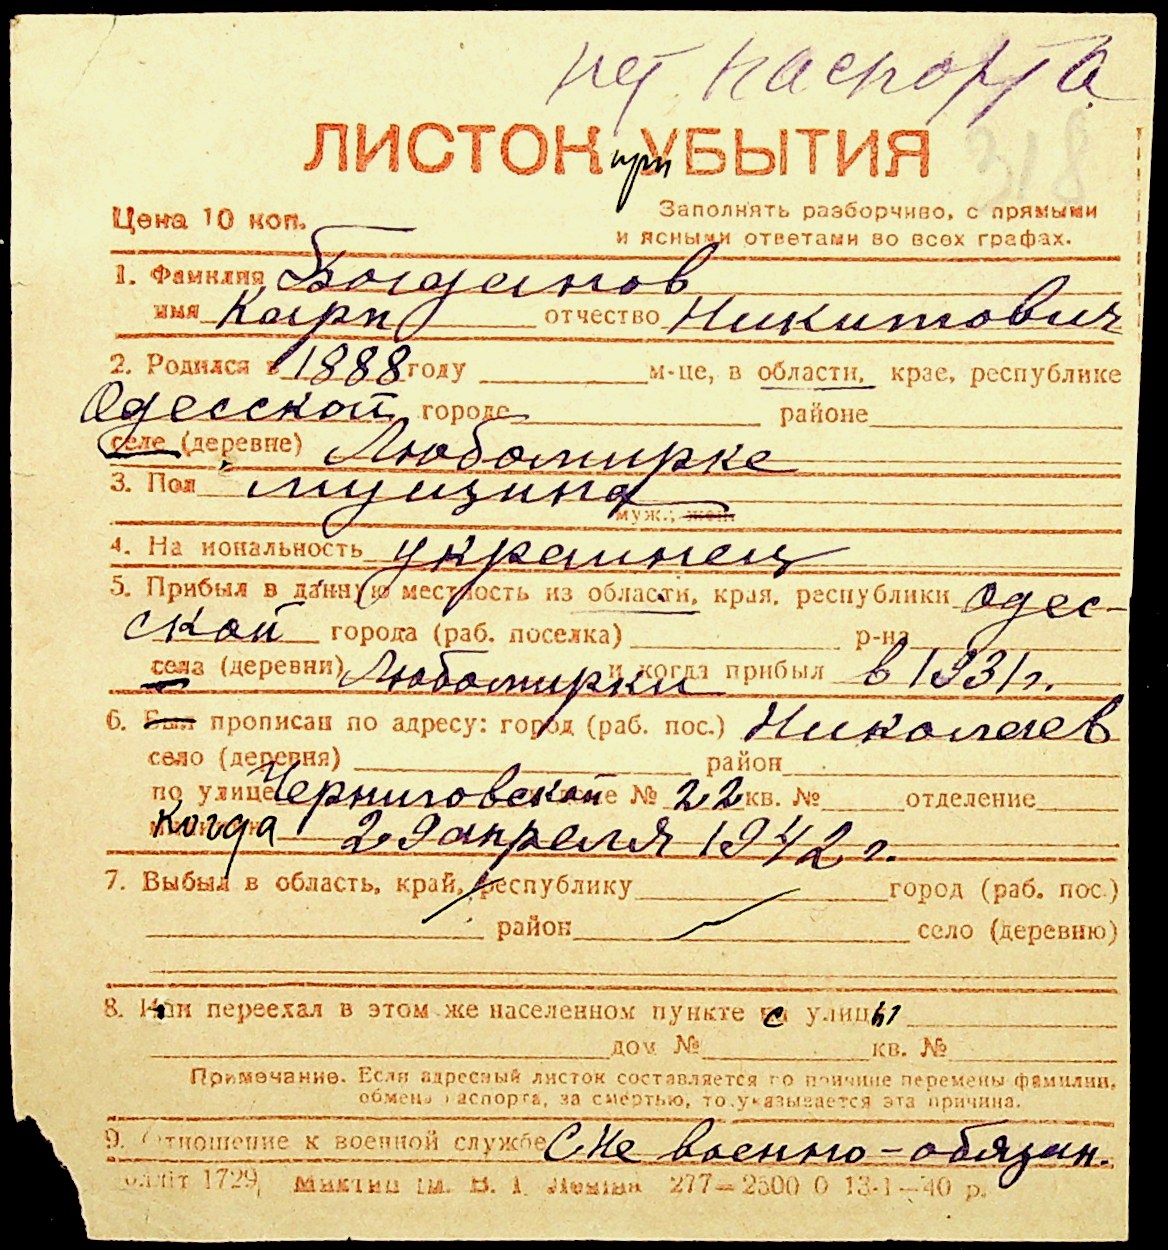 нет паспорта
318
ЛИСТОК при УБЫТИЯ
Цена 10 коп.
Заполнять разборчиво, с прямыми
и ясными ответами во всех графах.
1. Фамилия Богданов
имя Карп отчество Никитович
2. Родился в 1888 году м-це, в области, крае, республике
Одесской городе районе
селе (деревне) Любомирке
3. Пол мущина
муж., жен.
4. Национальность украинец
5. Прибыл в данную местность из области, края, республики Одес-
ской города (раб. поселка) р-на
села (деревни) Любомирки и когда прибыл в 1931 г.
6. Был прописан по адресу: город (раб. пос.) Николаев
село (деревня) район
по улице Черниговской № 22 кв. № отделение
когда 29 апреля 1942 г.
7. Выбыл в область, край, республику город (раб. пос.)
район село (деревню)
8. Или переехал в этом же населенном пункте с улицы
дом № кв. №
Примечание. Если адресный листок составляется по причине перемены фамилии,
обмена паспорта, за смертью, то указывается эта причина.
9. Отношение к военной службе Не военно-обязан.
1729 ім. В. І. Леніна 277—2500 0 13-1—40 р.